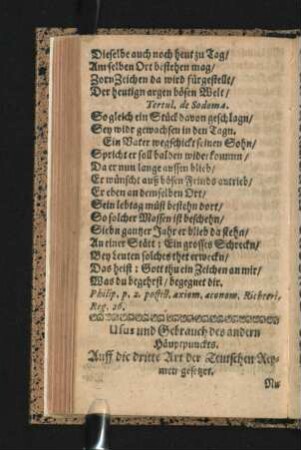 Dieselbe auch noch heut zu Tag/
Am selben Ort bestehen mag/
Zorn Zeichen da wird fürgestellt/
Der heutign argen bösen Welt/
Tertul. de Sodoma.
So gleich ein Stück davon geschlagn/
Sey widr gewachsen in den Tagn.
Ein Vater wegschickt seinen Sohn/
Spricht er soll balden wider kommn/
Da er nun lange aussen blieb/
Er wünscht auß bösen Feinds antrieb/
Er eben an demselben Ort/
Sein lebtag müst bestehn dort/
So solcher Massen ist beschehn/
Siebn gantzer Jahr er blieb da stehn/
An einer Stätt: Ein grosses Schreckn/
Bey leuten solches thet erweckn/
Das heist: Gott thu ein Zeichen an mir/
Was du begehrst/ begegnet dir.
Philip. p. 2. axiom. œconom. Richteri,
Reg. 26.
Usus und Gebrauch des andern
Häuptpuncts.
Auff die dritte Art der Teutschen Rey-
men gesetzet.
Nu